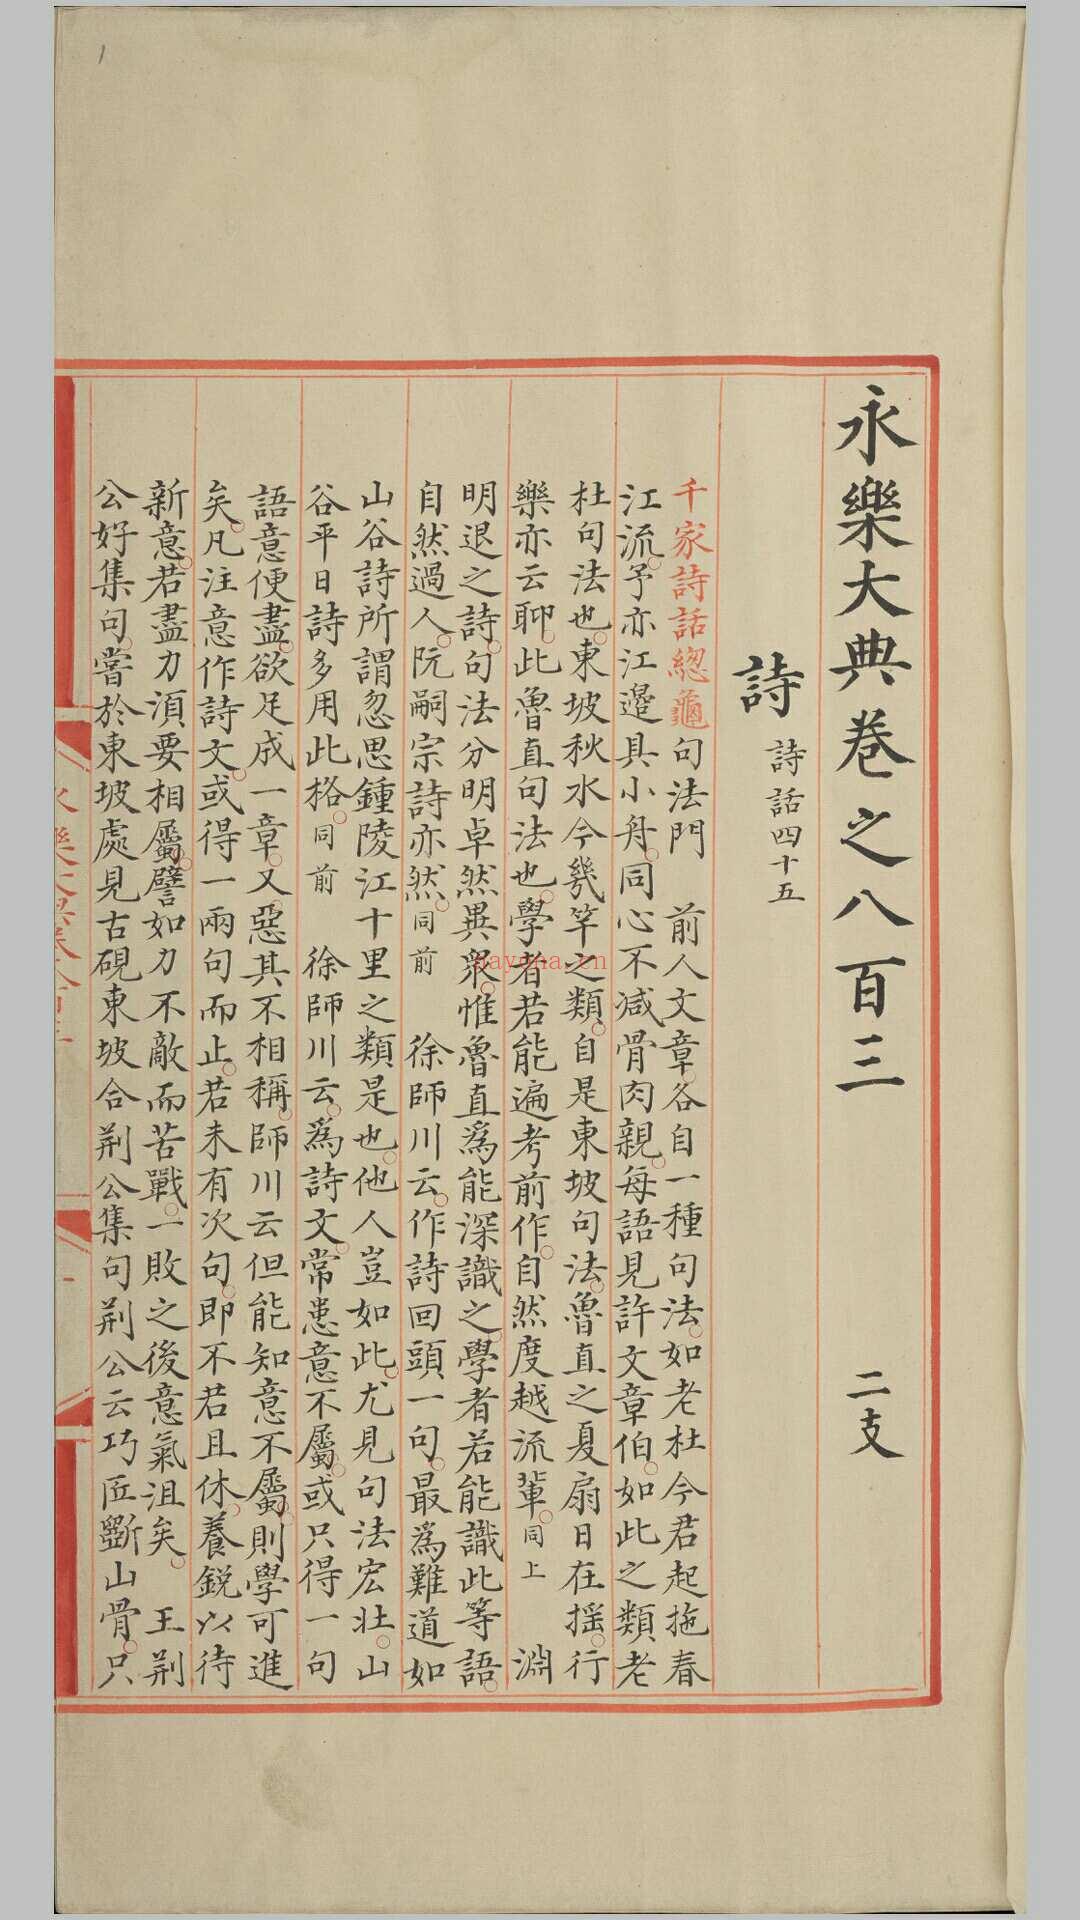 1
永樂大典卷之八百三 二支
詩 詩話四十五
千家詩話緫龜句法門 前人文章各自一種句法如老杜今君起拖春
江流予亦江邊具小舟同心不減骨肉親每語見許文章伯如此之類老
杜句法也東坡秋水今幾竿之類自是東坡句法魯直之夏扇日在搖行
樂亦云聊此魯直句法也學者若能遍考前作自然度越流輩同上 淵
明退之詩句法分明卓然異衆惟魯直爲能深識之學者若能識此等語
自然過人阮嗣宗詩亦然同前 徐師川云作詩回頭一句最爲難道如
山谷詩所謂忽思鍾陵江十里之類是也他人豈如此尤見句法宏壯山
谷平日詩多用此格同前 徐師川云爲詩文常患意不屬或只得一句
語意便盡欲足成一章又惡其不相稱師川云但能知意不屬則學可進
矣凡注意作詩文或得一兩句而止若未有次句即不若且休養銳以待
新意若盡力須要相屬譬如力不敵而苦戰一敗之後意氣沮矣 王荆
公好集句嘗於東坡處見古硯東坡合荆公集句荆公云巧匠斲山骨只
nayona.cn